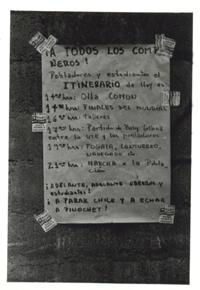 ¡A TODOS LOS COMPA
ÑEROS!
Pobladores y estudiantes el
ITINERARIO de Hoy es
14 hrs: Olla COMÚN
14 hrs: FINALES DEL MUNDIAL
16 hrs: Talleres
Partido de Baby
entre la UTE y los pobladores
19 hrs: FOGATA,
21 hrs: MARCHA a la Pobla
ción
¡ADELANTE, ADELANTE OBREROS Y
estudiantes!
¡A PARAR CHILE Y A ECHAR
A PINOCHET!